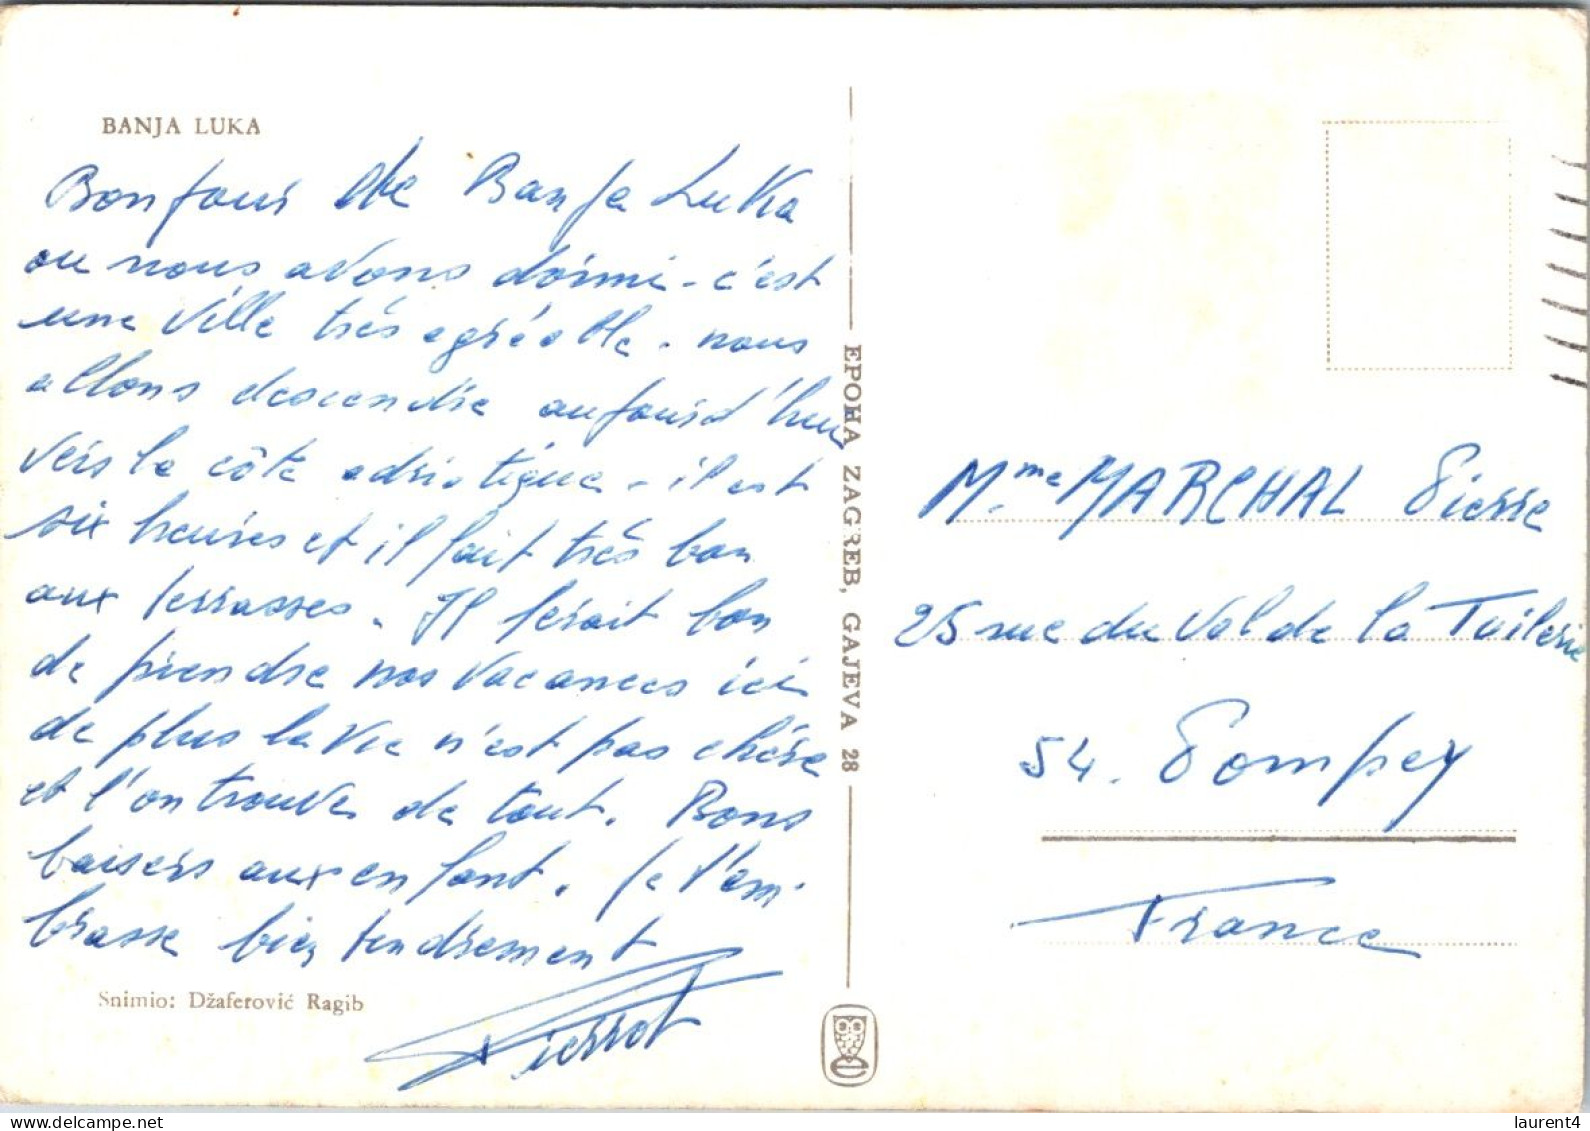 BANJA LUKA
Bonjour de Banja Luka
ou nous avons dormi - c'est
une ville très agréable. nous
allons descendre aujourd'hui
vers la côte adriatique - il est
six heures et il fait très bon
aux terrasses. Il ferait bon
de prendre nos vacances ici
de plus la vie n'est pas chère
et l'on trouve de tout. Bons
baisers aux enfant. Je t'em-
brasse bien tendrement
Pierrot
Snimio: Džaferović Ragib
EPOHA ZAGREB, GAJEVA 28
Mme MARCHAL Pierre
25 rue du Val de la Tuilerie
54. Pompey
France
laurent4